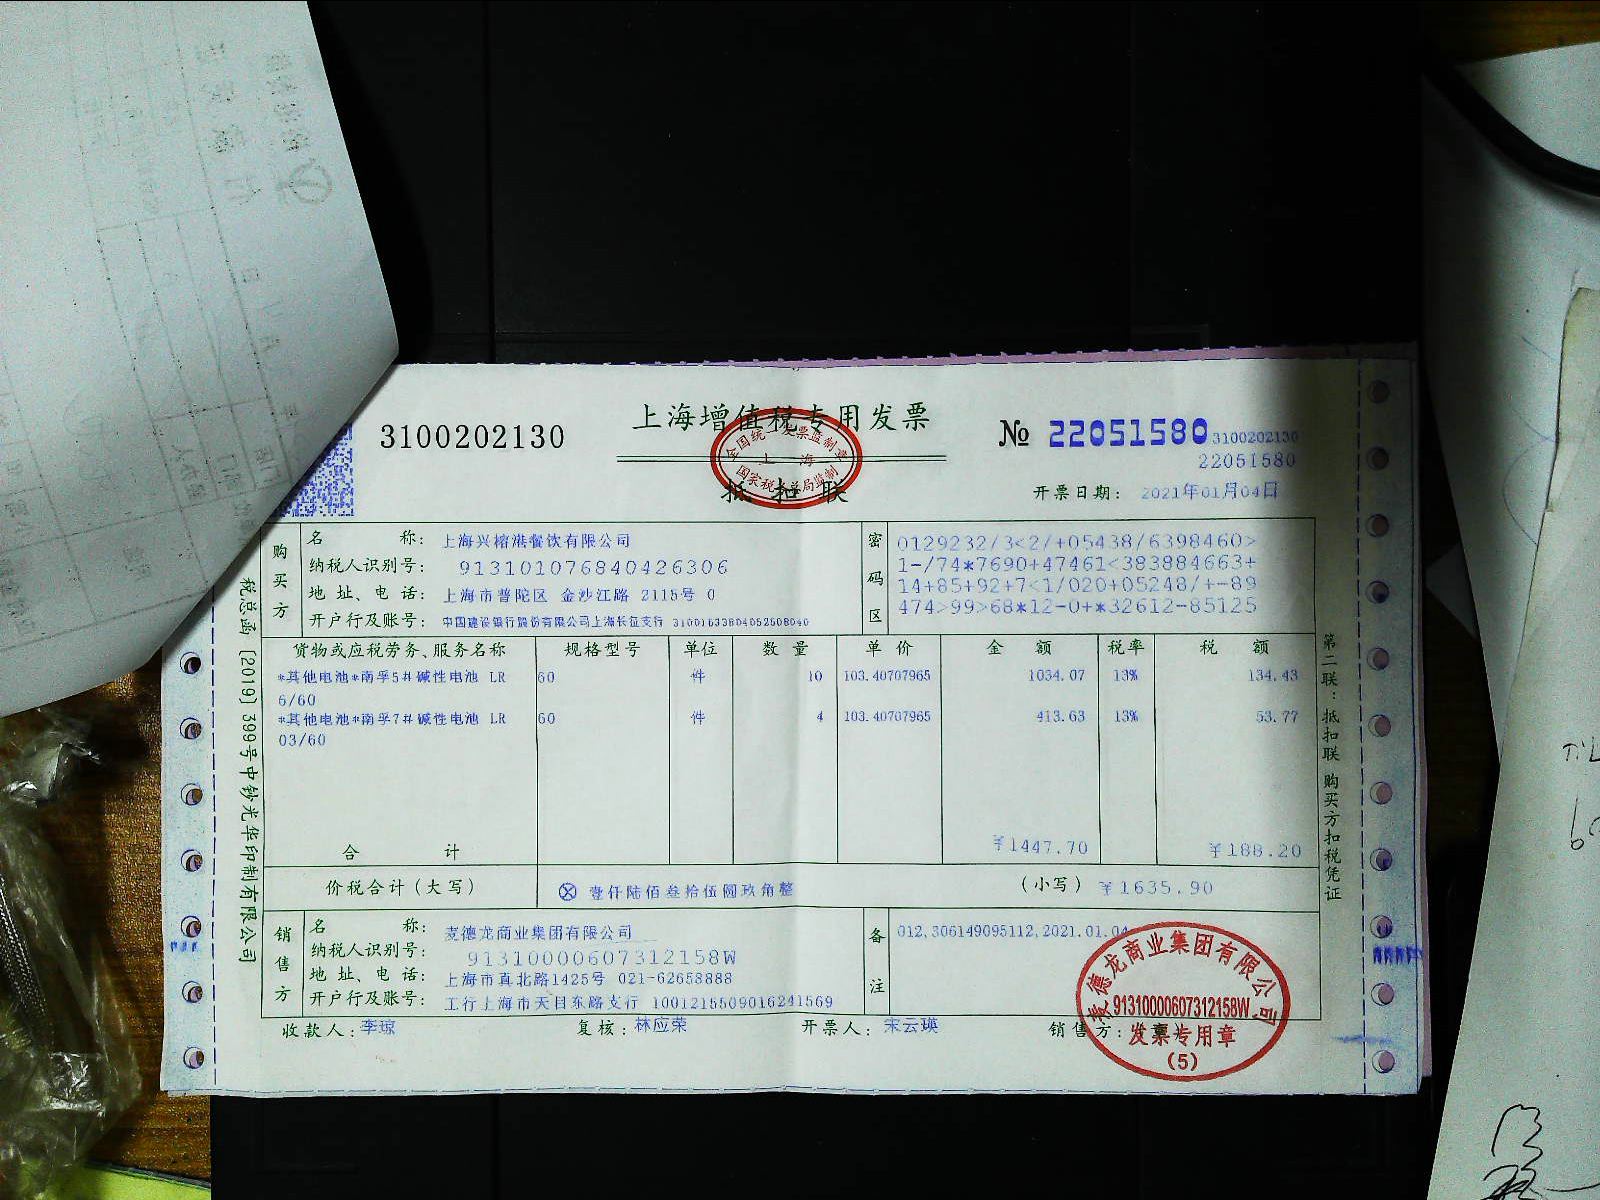 3100202130
上海增值税专用发票
全国统一发票监制章
上海
国家税务总局监制
抵扣联
№ 22051580
3100202130
22051580
开票日期: 2021年01月04日
购买方
名 称: 上海兴榕港餐饮有限公司
纳税人识别号: 913101076840426306
地 址、电 话: 上海市普陀区 金沙江路 2115号 0
开户行及账号: 中国建设银行股份有限公司上海长征支行 31001633804052508040
密码区
0129232/3<2/+05438/6398460>
1-/74*7690+47461<383884663+
14+85+92+7<1/020+05248/+-89
474>99>68*12-0+*32612-85125
货物或应税劳务、服务名称 规格型号 单位 数 量 单 价 金 额 税率 税 额
*其他电池*南孚5#碱性电池 LR 60 件 10 103.40707965 1034.07 13% 134.43
6/60
*其他电池*南孚7#碱性电池 LR 60 件 4 103.40707965 413.63 13% 53.77
03/60
合 计 ¥1447.70 ¥188.20
价税合计(大写) ⊗ 壹仟陆佰叁拾伍圆玖角整 (小写) ¥1635.90
销售方
名 称: 麦德龙商业集团有限公司
纳税人识别号: 91310000607312158W
地 址、电 话: 上海市真北路1425号 021-62658888
开户行及账号: 工行上海市天目东路支行 1001215509016241569
备注
012,306149095112,2021.01.04
收款人: 李琼 复核: 林应荣 开票人: 宋云瑛 销售方:
麦德龙商业集团有限公司
91310000607312158W
发票专用章
(5)
税总函[2019]399号中钞光华印制有限公司
第二联:抵扣联 购买方扣税凭证